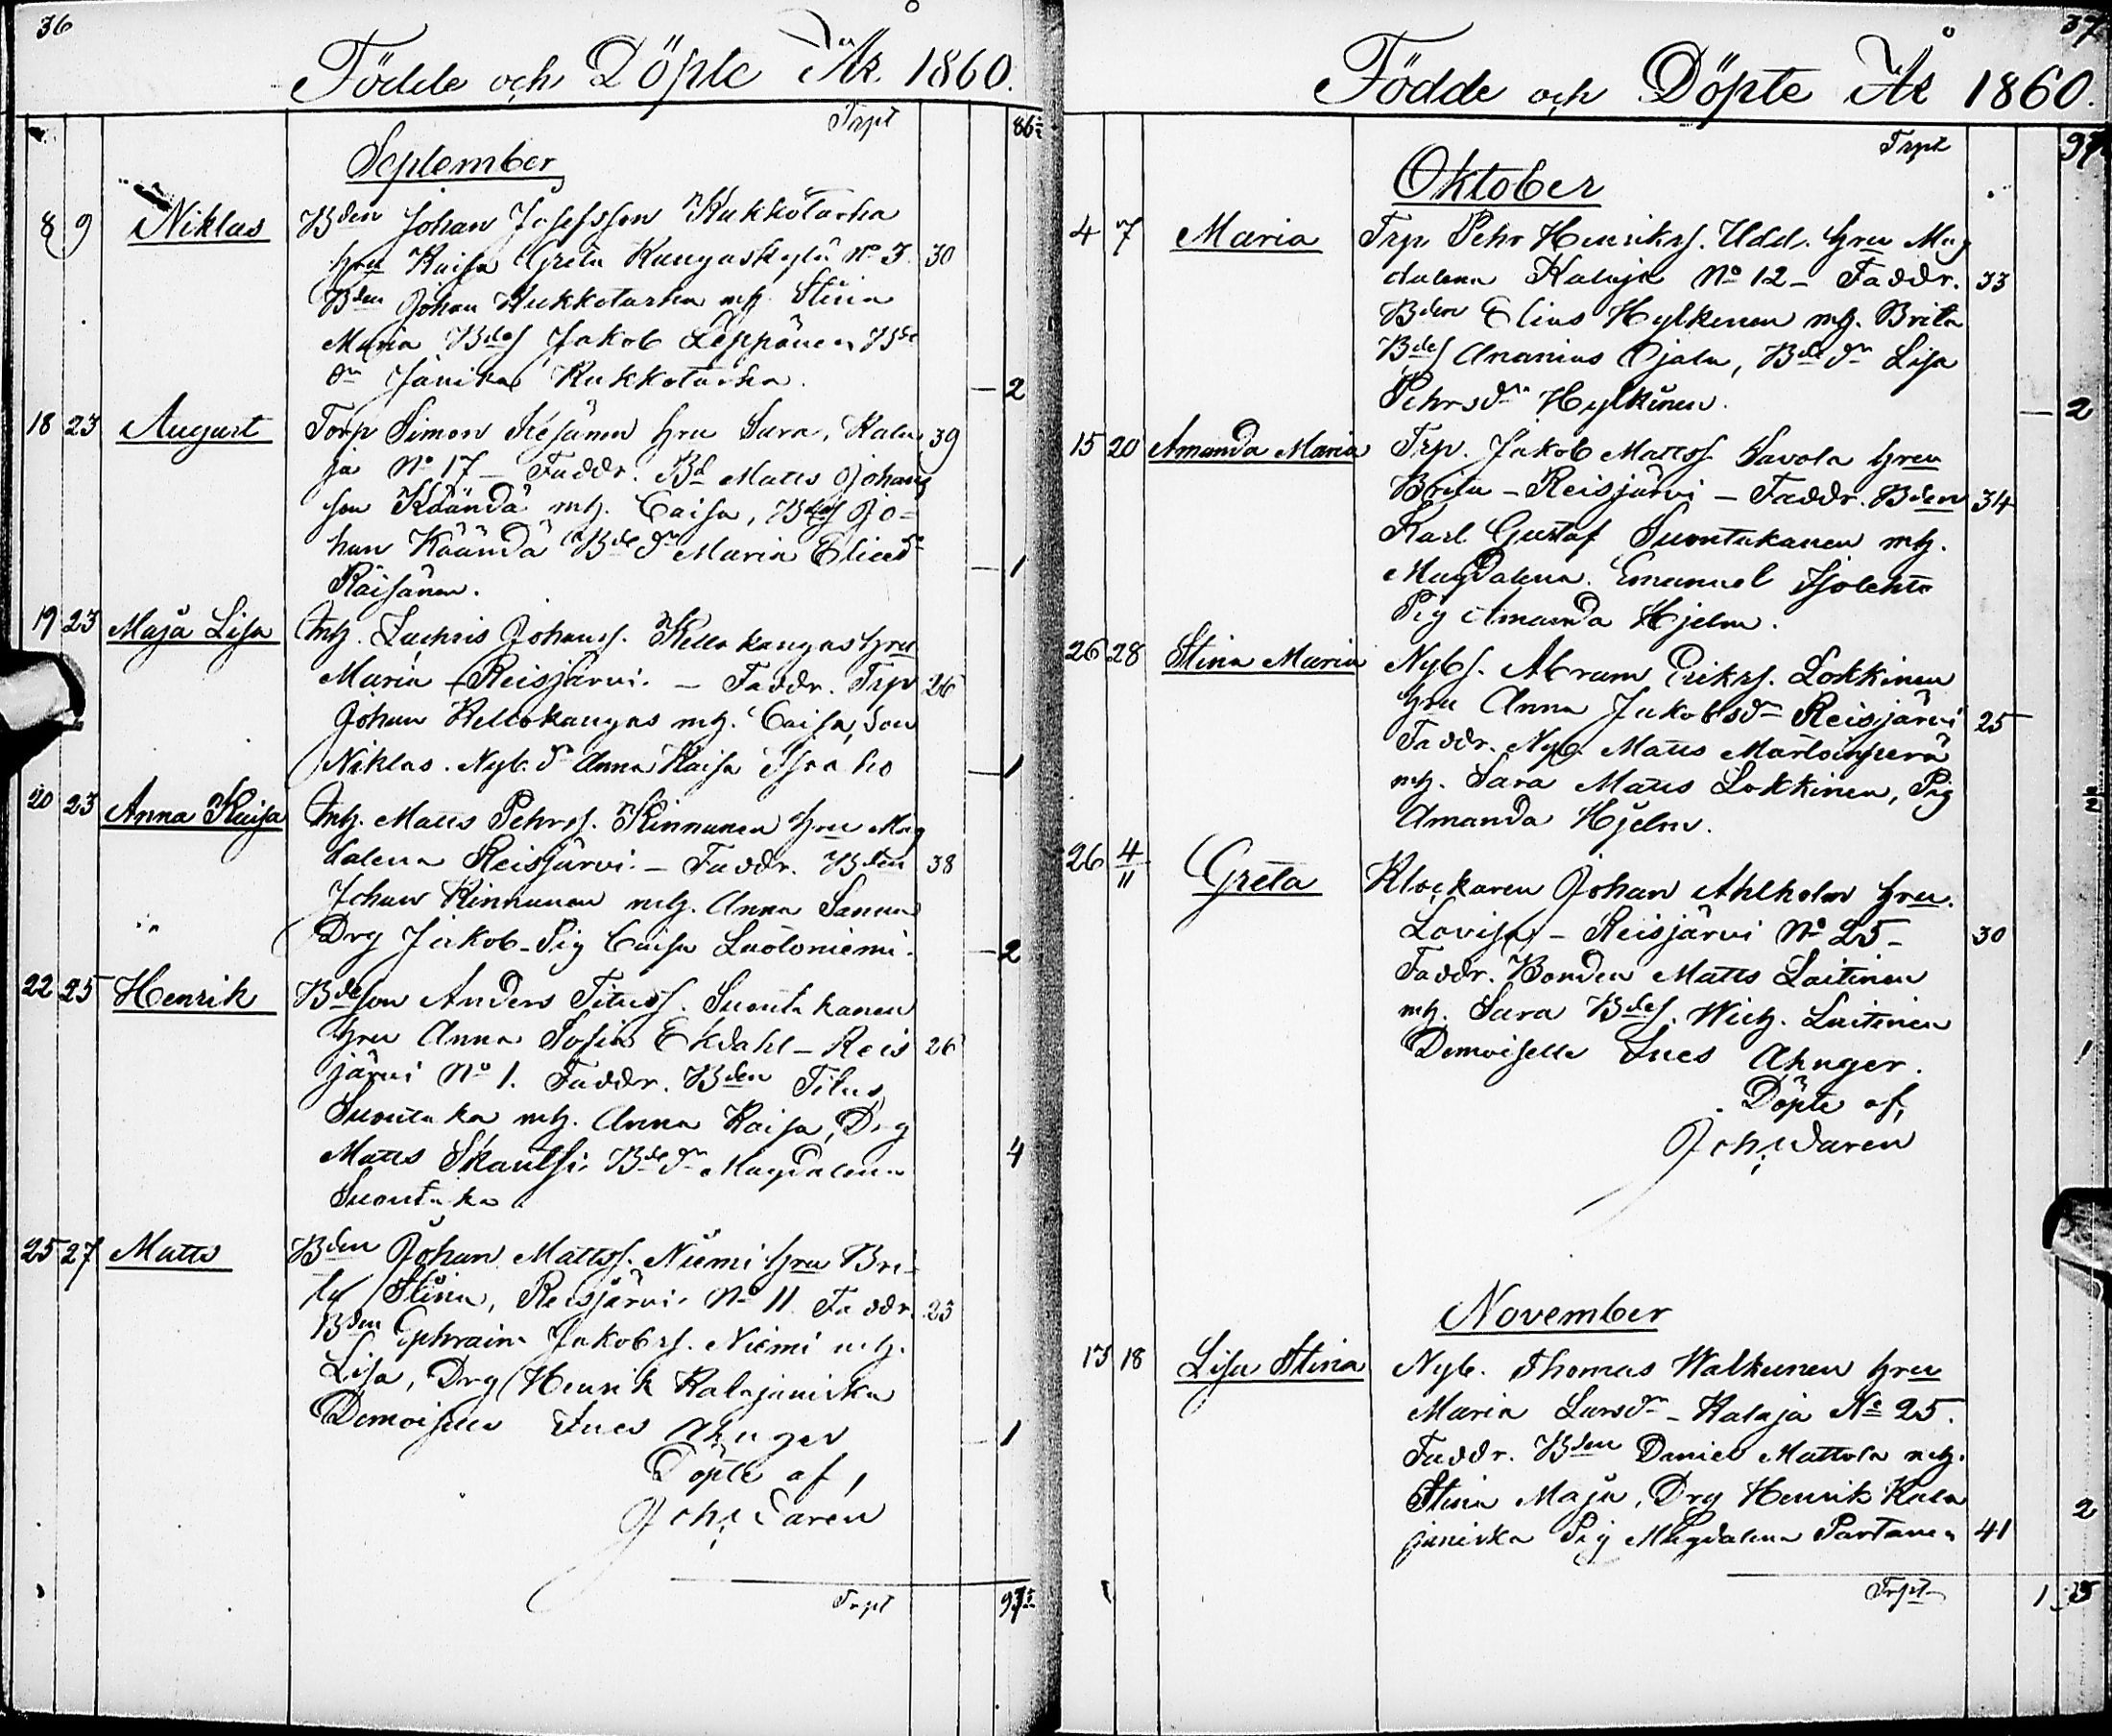 36
Födde och Döpte År 1860.
Trpt 86
September
8 9 Niklas Bden Johan Josefsson Kukkotarha
hru Kaisa Greta Kangaskylä No 3. 30
Bden Johan Kukkotarha mh. Stina
Maria Bdes Jakob Leppänen Bde
dr Janika Kukkotarha. 2
18 23 August Torp Simon Kesänen hru Sara, Kala 39
ja No 17 – Faddr. Bd Matts Johans
son Käändä mh. Caisa, Bdes Jo=
han Käändä Bde dr Maria Eliedr 1
Räisänen.
19 23 Maja Lisa Inh. Zachris Johanss. Kellokangas hru
Maria – Reisjärvi. – Faddr. Trp 26
Johan Kellokangas mh. Caisa, son
Niklas. Nyb. dr Anna Kaisa 1
20 23 Anna Kaisa Inh. Matts Pehrss. Kinnunen hru Mag
dalena Reisjärvi. – Faddr. Bden 38
Johan Kinnunen mh. Anna Sanna
Drg Jakob – Pig Caisa Luotoniemi. 2
22 25 Henrik Bdeson Anders Tituss. Suontakanen
hru Anna Sofia Ekdahl – Reis 26
järvi No 1. Faddr. Bden Titus
Suontaka mh. Anna Kaisa, Drg
Matts Skantsi Bde dr Magdalena 4
Suontaka
25 27 Matts Bden Johan Mattss. Niemi hru Bri=
ta Stina, Reisjärvi No 11 Faddr. 23
Bden Ephraim Jakobss. Niemi mh.
Lisa, Drg Henrik Kalajaniska
Demoiselle Ines Ahnger 1
Döpte af,
Joh: Daren
Trpt 97
37
Födde och Döpte År 1860.
Trpt 97
Oktober
4 7 Maria Trp Pehr Henrikss. Udd. hru Mag
dalena Kalaja No 12 – Faddr. 33
Bden Elias Hylkinen mh. Brita
Bdes Ananias Ojala, Bde dr Lisa
Pehrsdr Hylkinen. 2
15 20 Amanda Maria Trp. Jakob Mattss. Savola hru
Brita – Reisjärvi – Faddr. Bden 34
Karl Gustaf Suontakanen mh.
Magdalena. Emanuel Isolehto
Pig Amanda Hjelm.
26 28 Stina Maria Nybs. Abram Erikss. Lokkinen
hru Anna Jakobsdr Reisjärvi 25
Faddr. Nyb. Matts Martonperä
mh. Sara Matts Lokkinen, Pig 2
Amanda Hjelm. 2
26 4/11 Greta Klockaren Johan Ahlholm hru.
Lovisa – Reisjärvi No 25 – 30
Faddr. Bonden Matts Laitinen
mh. Sara Bdes. Mich. Laitinen
Demoiselle Ines Ahnger. 1
Döpte af,
Joh: Daren
November
13 18 Lisa Stina Nyb. Thomas Walkeinen hru
Maria Larsdr – Kalaja No 25.
Faddr. Bden Daniel Mattola mh.
Stina Maja, Drg Henrik Kala
janiska Pig Magdalena Partanen 41 2
Trpt